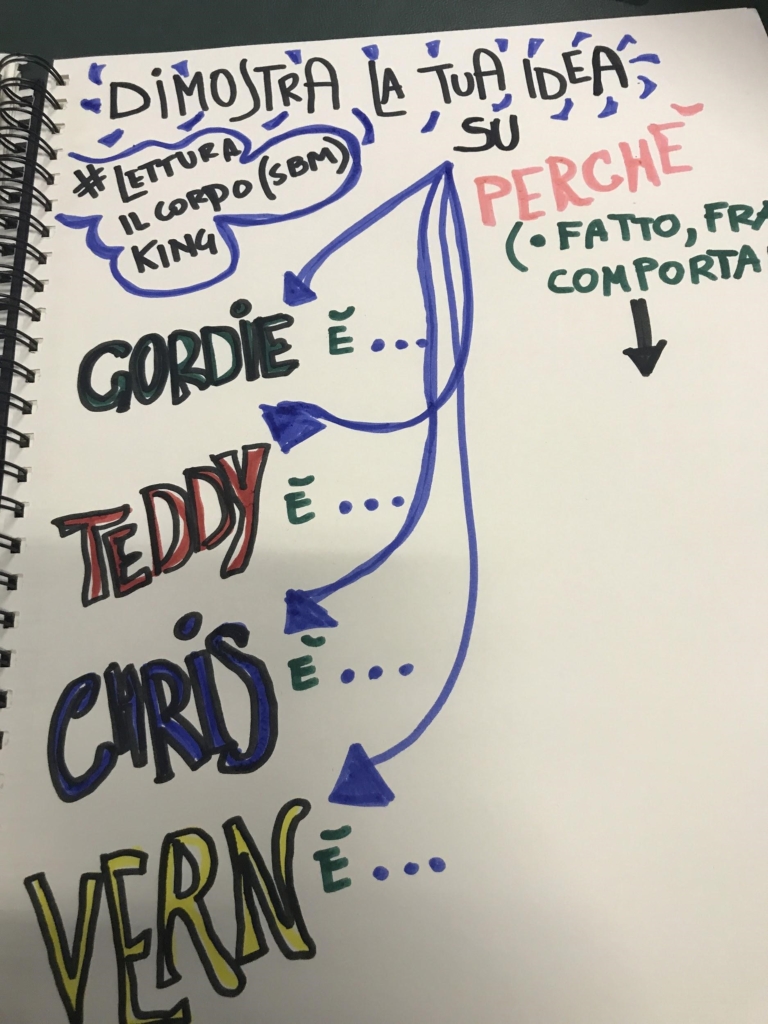 DIMOSTRA LA TUA IDEA
SU
# LETTURA
IL CORPO (SBM)
KING
PERCHĒ
(• FATTO, FRA
COMPORTA
GORDIE Ē ...
TEDDY Ē ...
CHRIS Ē ...
VERN Ē ...